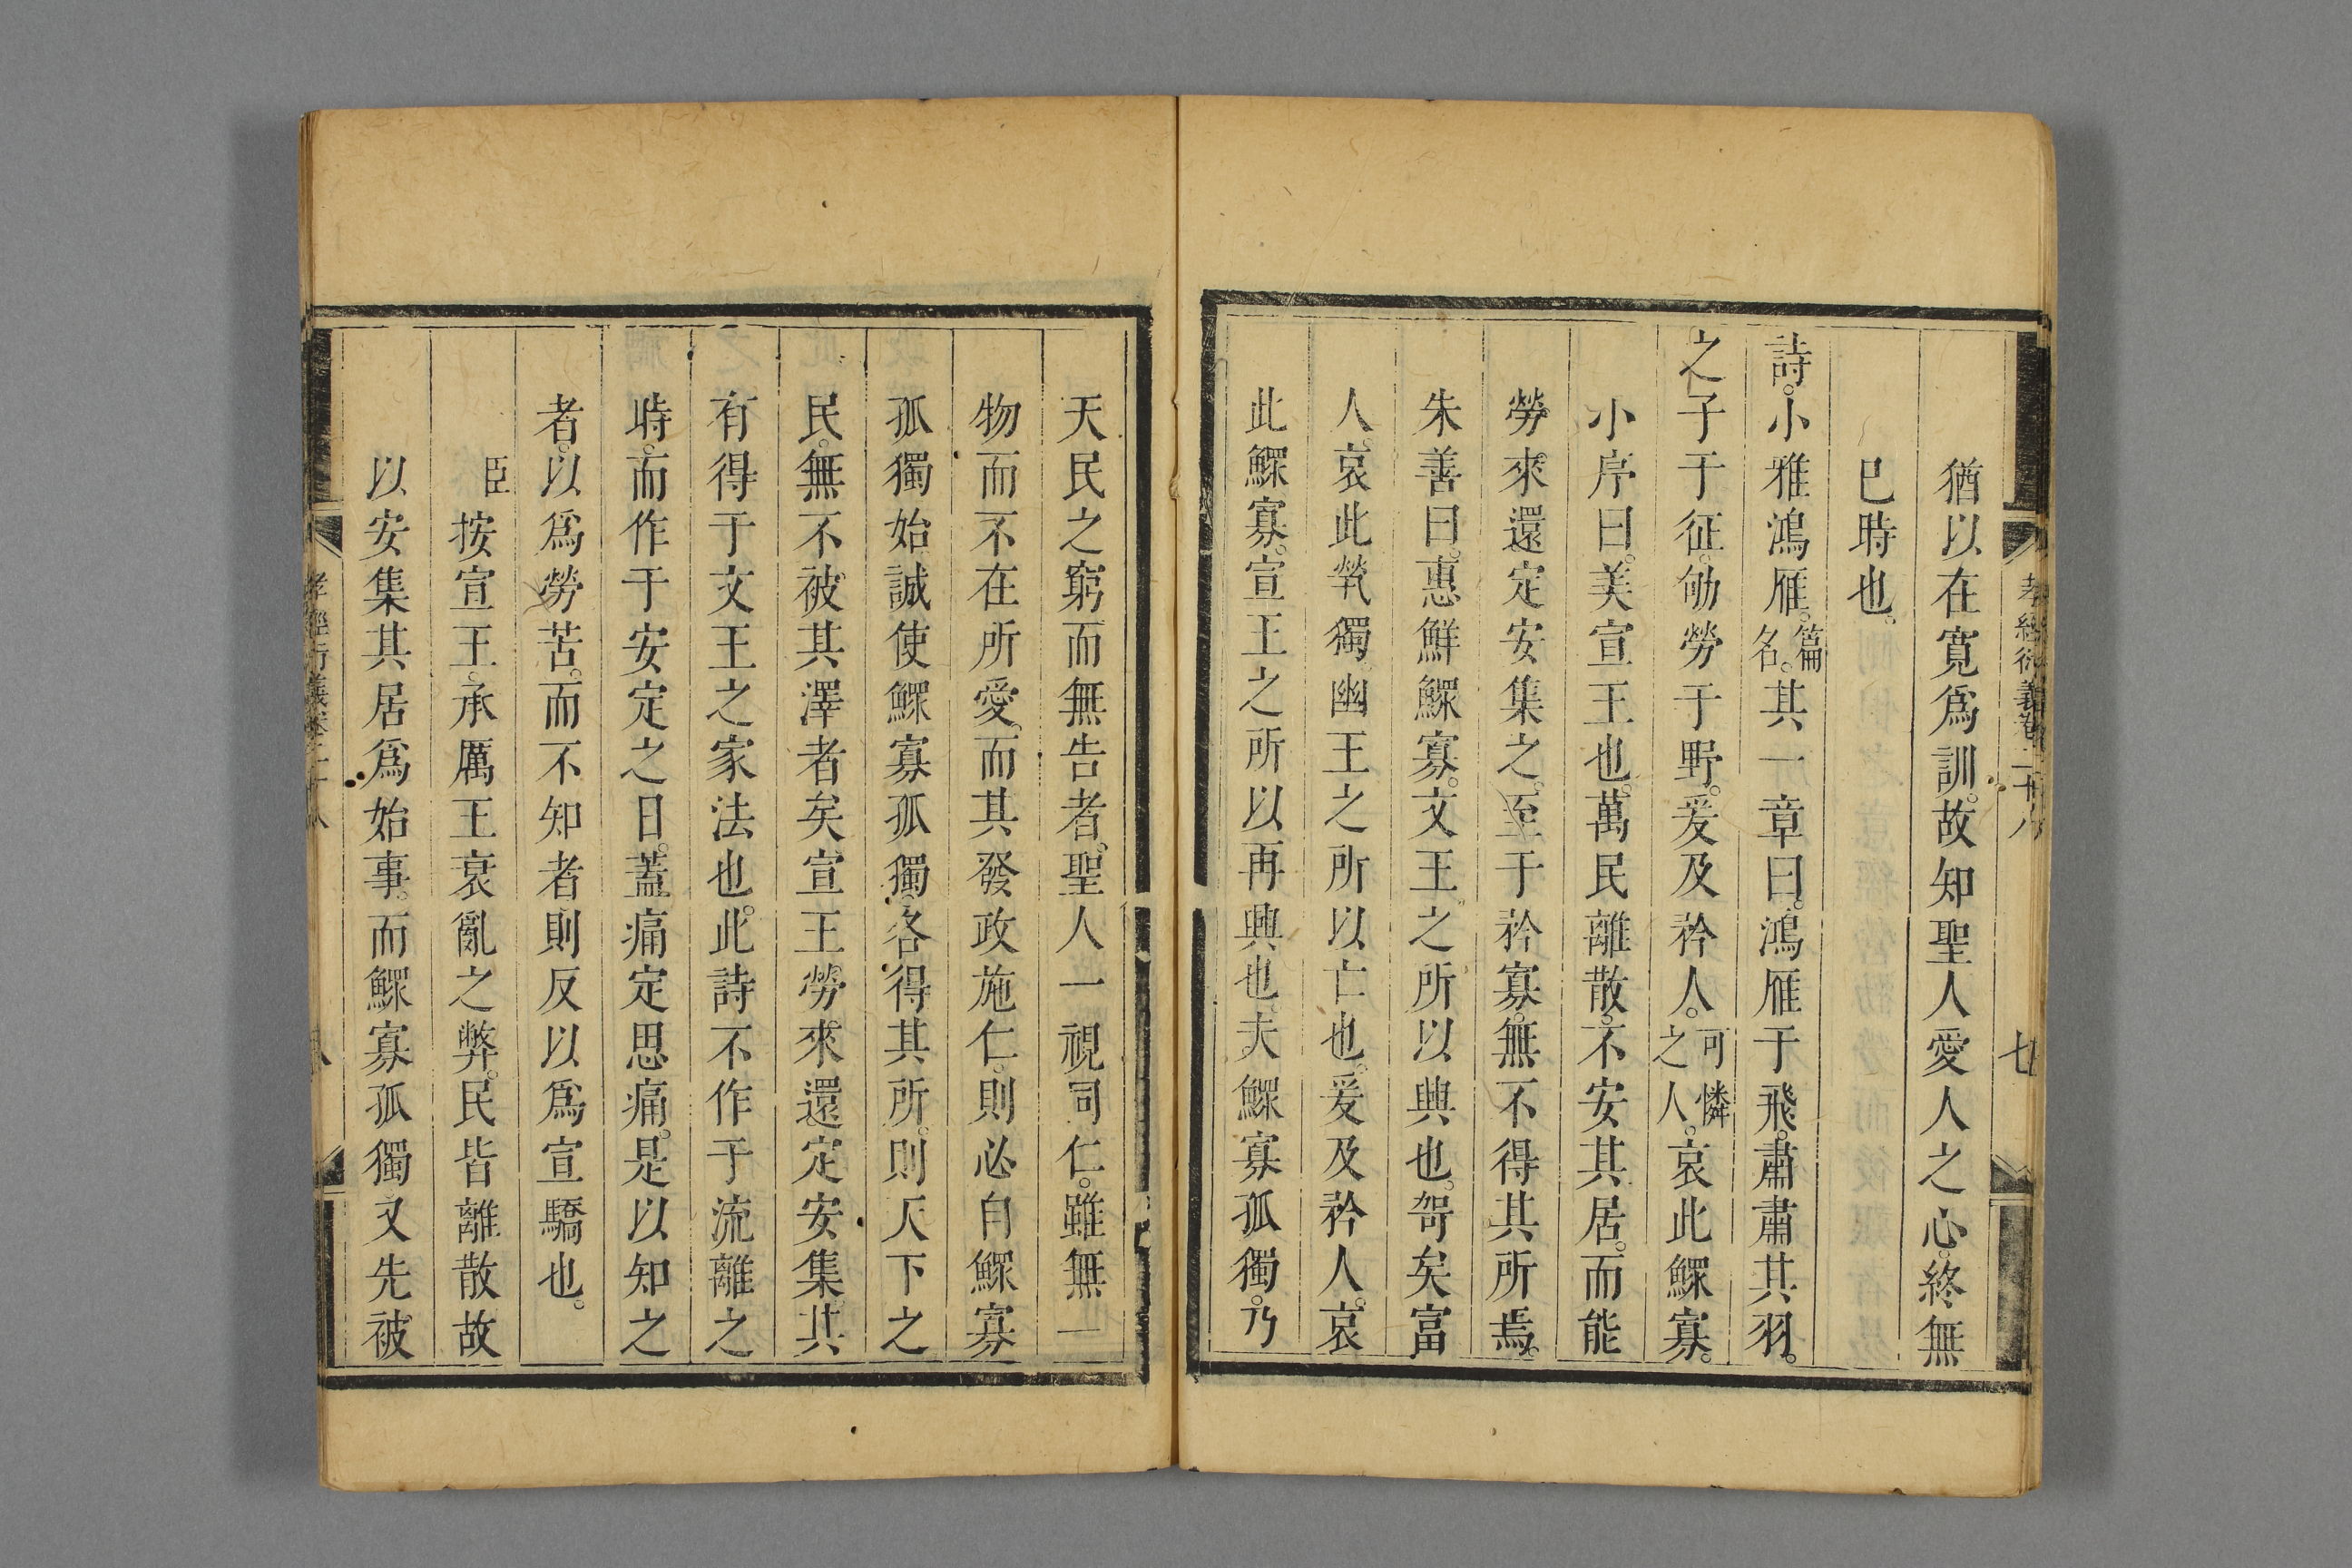 孝經衍義卷二十八 七
猶以在寬爲訓。故知聖人愛人之心。終無
已時也。
詩。小雅鴻雁。篇名。其一章曰。鴻雁于飛。肅肅其羽。
之子于征。劬勞于野。爰及矜人。可憐之人。哀此鰥寡。
小序曰。美宣王也。萬民離散。不安其居。而能
勞來還定安集之。至于矜寡。無不得其所焉。
朱善曰。惠鮮鰥寡。文王之所以興也。哿矣富
人。哀此煢獨。幽王之所以亡也。爰及矜人。哀
此鰥寡。宣王之所以再興也。夫鰥寡孤獨。乃
天民之窮而無告者。聖人一視同仁。雖無一
物而不在所愛。而其發政施仁。則必自鰥寡
孤獨始。誠使鰥寡孤獨。各得其所。則天下之
民。無不被其澤者矣。宣王勞來還定安集。其
有得于文王之家法也。此詩不作于流離之
時。而作于安定之日。蓋痛定思痛。是以知之
者。以爲勞苦。而不知者則反以爲宣驕也。
臣按宣王。承厲王衰亂之弊。民皆離散。故
以安集其居爲始事。而鰥寡孤獨又先被
孝經衍義卷二十八 八